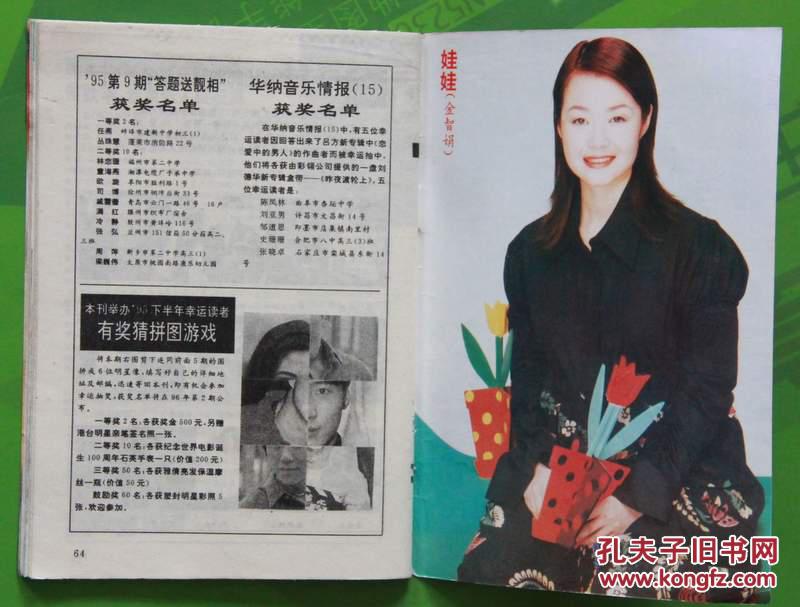 '95第9期“答题送靓相”
获奖名单
一等奖2名:
任燕 蚌埠市建新中学初三(1)
丛珠慧 蓬莱市清防路22号
二等奖10名:
林恋珊 福州市第二中学
童海燕 湘潭电缆厂子弟中学
欧旋 耒阳市胜利路1号
司博 徐州市铜沛后街33号
戚雷蕾 青岛市云门一路46号 16户
满红 滕州市织布厂宿舍
冷静 胶州市黄埠岭116号
张弘 兰州市151信箱50分箱高二、
三班
周萍 新乡市第二中学高三(1)
梁巍伟 太原市桃园南路康乐幼儿园
华纳音乐情报(15)
获奖名单
在华纳音乐情报(15)中,有五位幸
运读者因回答出来了吕方新专辑中《恋
爱中的男人》的作曲者而被幸运抽中,
他们将各获由彩领公司提供的一盘刘
德华新专辑盒带——《昨夜渡轮上》,五
位幸运读者是:
陈凤林 曲阜市杏坛中学
刘亚男 许昌市文昌街14号
邹道恩 即墨市店集镇南里村
史珊珊 合肥市八中高三(3)班
张晓卓 石家庄市栾城县东新14
号
本刊举办'95下半年幸运读者
有奖猜拼图游戏
将本期右图剪下连同前面5期的图
拼成6位明星像,填写好自己的详细地
址及邮编,迅速寄回本刊,即有机会参加
幸运抽奖,获奖名单将在96年第2期公
布。
一等奖2名:各获奖金500元,另赠
港台明星亲笔签名照一张。
二等奖10名:各获纪念世界电影诞
生100周年石英手表一只(价值200元)
三等奖50名:各获雅倩亮发保温摩
丝一瓶(价值50元)
鼓励奖60名:各获塑封明星彩照5
张,欢迎参加。
64
娃娃(金智娟)
孔夫子旧书网
www.kongfz.com